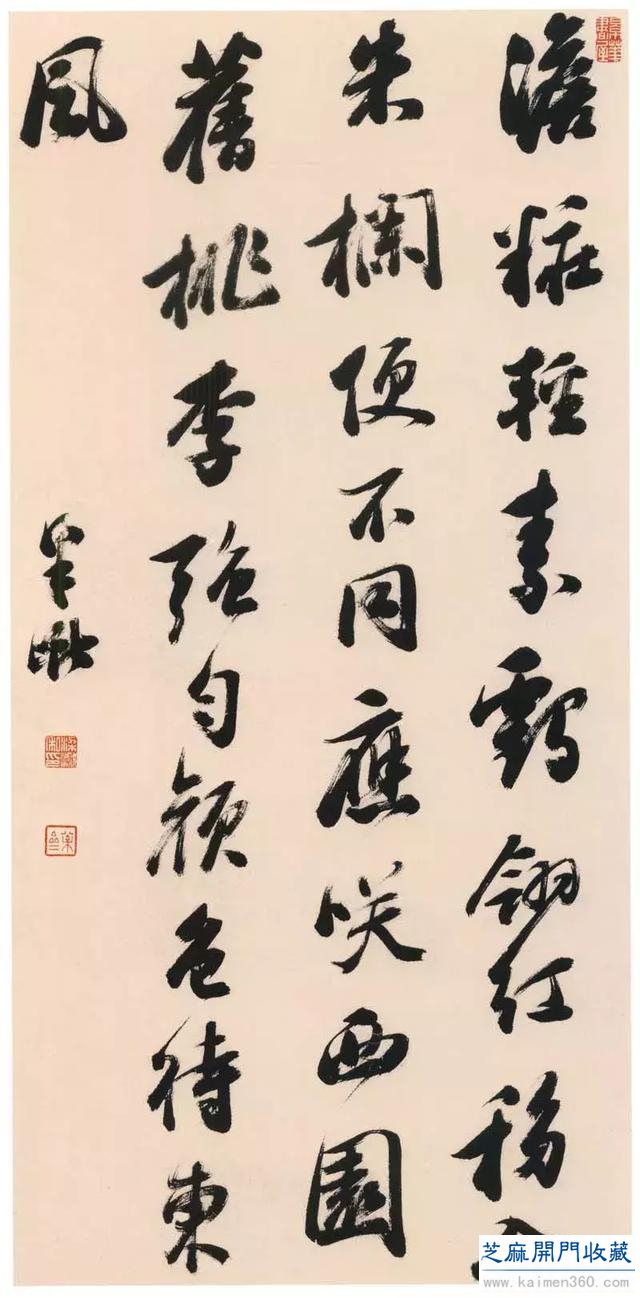 澹粧輕素鶴翎紅移入
朱欄便不同應咲西園
舊桃李強勻顏色待東
風
芝麻開門收藏
www.kaimen360.com